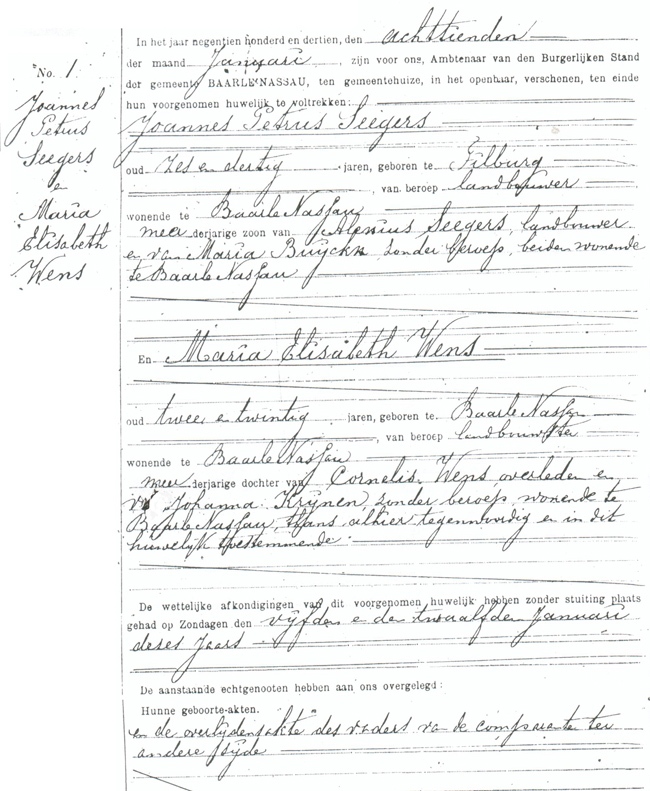 No. 1
Joannes
Petrus
Seegers
e
Maria
Elisabeth
Wens
In het jaar negentien honderd en dertien, den achttienden
der maand Januari, zijn voor ons, Ambtenaar van den Burgerlijken Stand
der gemeente BAARLE-NASSAU, ten gemeentehuize, in het openbaar, verschenen, ten einde
hun voorgenomen huwelijk te voltrekken:
Joannes Petrus Seegers
oud zes en dertig jaren, geboren te Tilburg
, van beroep landbouwer
wonende te Baarle Nassau
meerderjarige zoon van Seegers, landbouwer
en van Maria Buyckx zonder beroep, beiden wonende
te Baarle Nassau
En Maria Elisabeth Wens
oud twee e twintig jaren, geboren te Baarle Nassau
, van beroep landbouwster
wonende te Baarle Nassau
meerderjarige dochter van Cornelis Wens overleden en
v Johanna Krijnen, zonder beroep wonende te
Baarle Nassau, thans alhier tegenwoordig en in dit
huwelijk toestemmende.
De wettelijke afkondigingen van dit voorgenomen huwelijk hebben zonder stuiting plaats
gehad op Zondagen den vijfden e den twaalfden Januari
dezes jaars
De aanstaande echtgenooten hebben aan ons overgelegd:
Hunne geboorte-akten.
en de overlijdensakte des vaders van de comparante ter
andere zijde